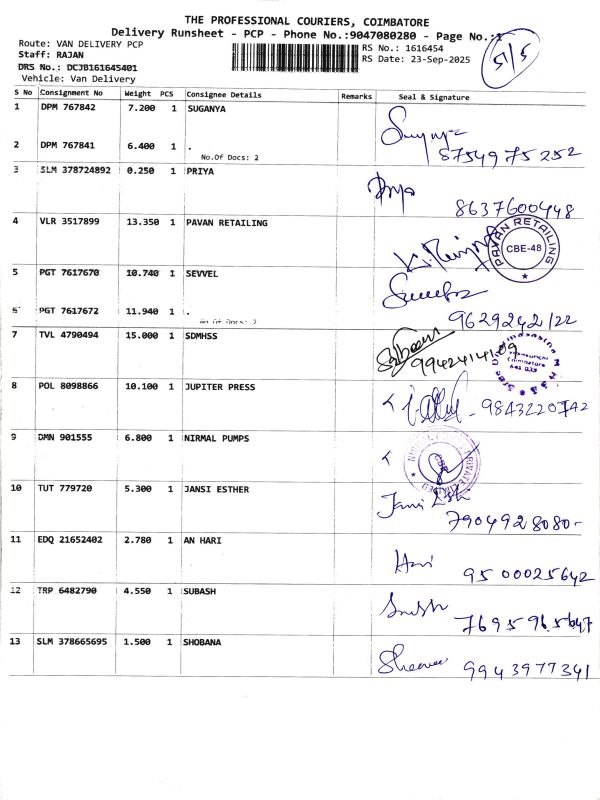 THE PROFESSIONAL COURIERS, COIMBATORE
Delivery Runsheet - PCP - Phone No.:9047080280 - Page No.:1
5/5
Route: VAN DELIVERY PCP
Staff: RAJAN
RS No.: 1616454
DRS No.: DCJB161645401
RS Date: 23-Sep-2025
Vehicle: Van Delivery
S No Consignment No Weight PCS Consignee Details Remarks Seal & Signature
1 DPM 767842 7.200 1 SUGANYA
2 DPM 767841 6.400 1 . 87549 75252
No.Of Docs: 2
3 SLM 378724892 0.250 1 PRIYA Priya
8637600448
4 VLR 3517899 13.350 1 PAVAN RETAILING
PAVAN RETAILING CBE-48
5 PGT 7617670 10.740 1 SEVVEL
6 PGT 7617672 11.940 1 . 9629242122
No.Of Docs: 2
7 TVL 4790494 15.000 1 SDMHSS 9942414109
Coimbatore
641 039
8 POL 8098866 10.100 1 JUPITER PRESS - 9843220742
9 DMN 901555 6.800 1 NIRMAL PUMPS
PRIVATE LIMITED
10 TUT 779720 5.300 1 JANSI ESTHER
7904928080-
11 EDQ 21652402 2.780 1 AN HARI Hari
9500025642
12 TRP 6482790 4.550 1 SUBASH
7695965647
13 SLM 378665695 1.500 1 SHOBANA
9943977341